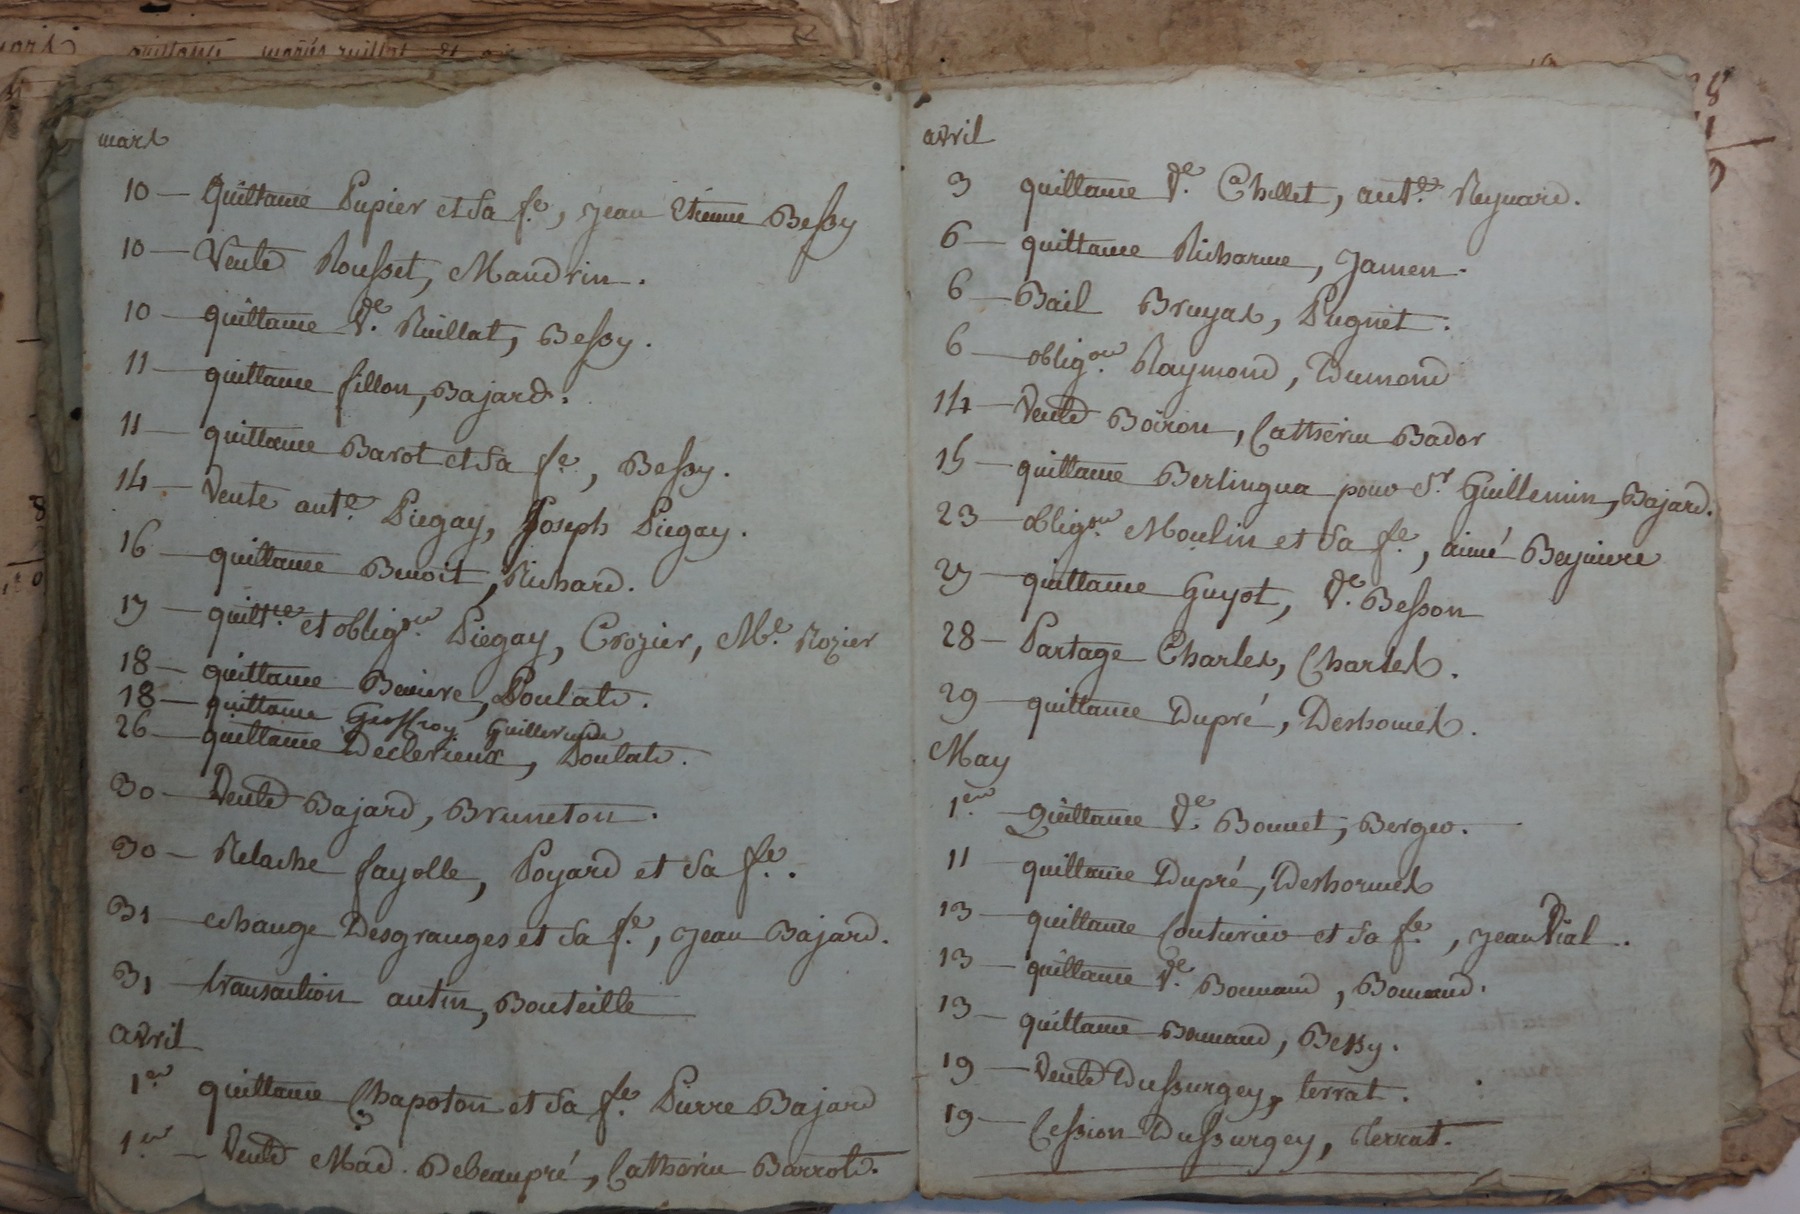 mars
10 — Quittance Pupier et sa fe, jean Etienne Bessy
10 — Vente Rousset, Mandrin.
10 — quittance Ve. Ruillat, Bessy.
11 — quittance fillon, Bajard.
11 — quittance Barot et sa fe, Bessy.
14 — Vente ante. Piegay, Joseph Piegay.
16 — quittance Benoit, Richard.
17 — quittce et obligon. Piegay, Crozier, Me. Rozier
18 — quittance Poulat.
18 — quittance Geoffroy
26 — quittance Declerieux, Poulat.
30 — Vente Bajard, Bruneton.
30 — Relache fayolle, Poyard et sa fe.
31 — echange Desgranges et sa fe, jean Bajard.
31 — transaction autin, Bouteille
avril
1er quittance Chapoton et sa fe. Pierre Bajard
1er — Vente Mad. Debeaupré, Catherine Barrot.
avril
3 quittance Ve. Chillet, ante. Reynard.
6 — quittance Richarme, Jamen.
6 — Bail Bruyas, Pugnet.
6 — obligon. Raymond, Dumond
14 — Vente Boiron, Catherine Bador
15 — quittance Berlingua pour Sr Guillemin, Bajard.
23 — obligon. Moulin et sa fe, aimé
27 — quittance Guyot, Ve. Besson
28 — Partage Charles, Charles.
29 — quittance Dupré, Deshormes.
May
1er — Quittance Ve. Bonnet, Berger.
11 — quittance Dupré, Deshormes
13 — quittance Couturier et sa fe, jean Vial.
13 — quittance Ve. Bonnand, Bonnand.
13 — quittance Bonnand, Bessy.
19 — Vente Dussurgey, terrat.
19 — Cession Dussurgey, terrat.